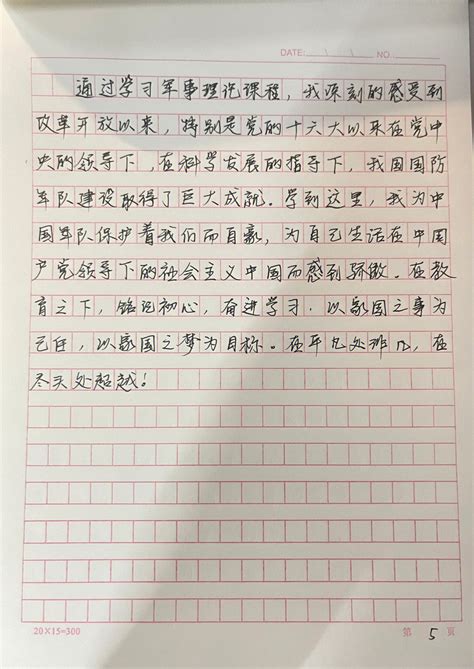 DATE: NO
通过学习军事理论课程，我深刻的感受到
改革开放以来，特别是党的十六大以来在党中
央的领导下，在科学发展的指导下，我国国防
军队建设取得了巨大成就。学到这里，我为中
国军队保护着我们而自豪，为自己生活在中国
产党领导下的社会主义中国而感到骄傲。在教
育之下，铭记初心，奋进学习，以家国之事为
己任，以家国之梦为目标。在平凡处非凡，在
尽头处超越！
20×15=300
第 5 页